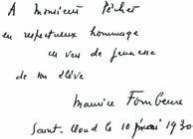 A Monsieur Pécher
en respectueux hommage
ces vers de jeunesse
de son élève
Maurice Fombeure
Saint-Cloud le 10 mai 1930